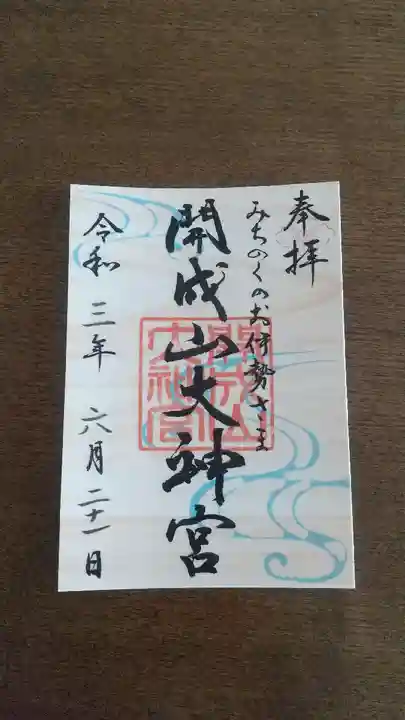 奉拝
みちのくのお伊勢さま
開成山大神宮
開成山大神宮
令和三年六月二十一日